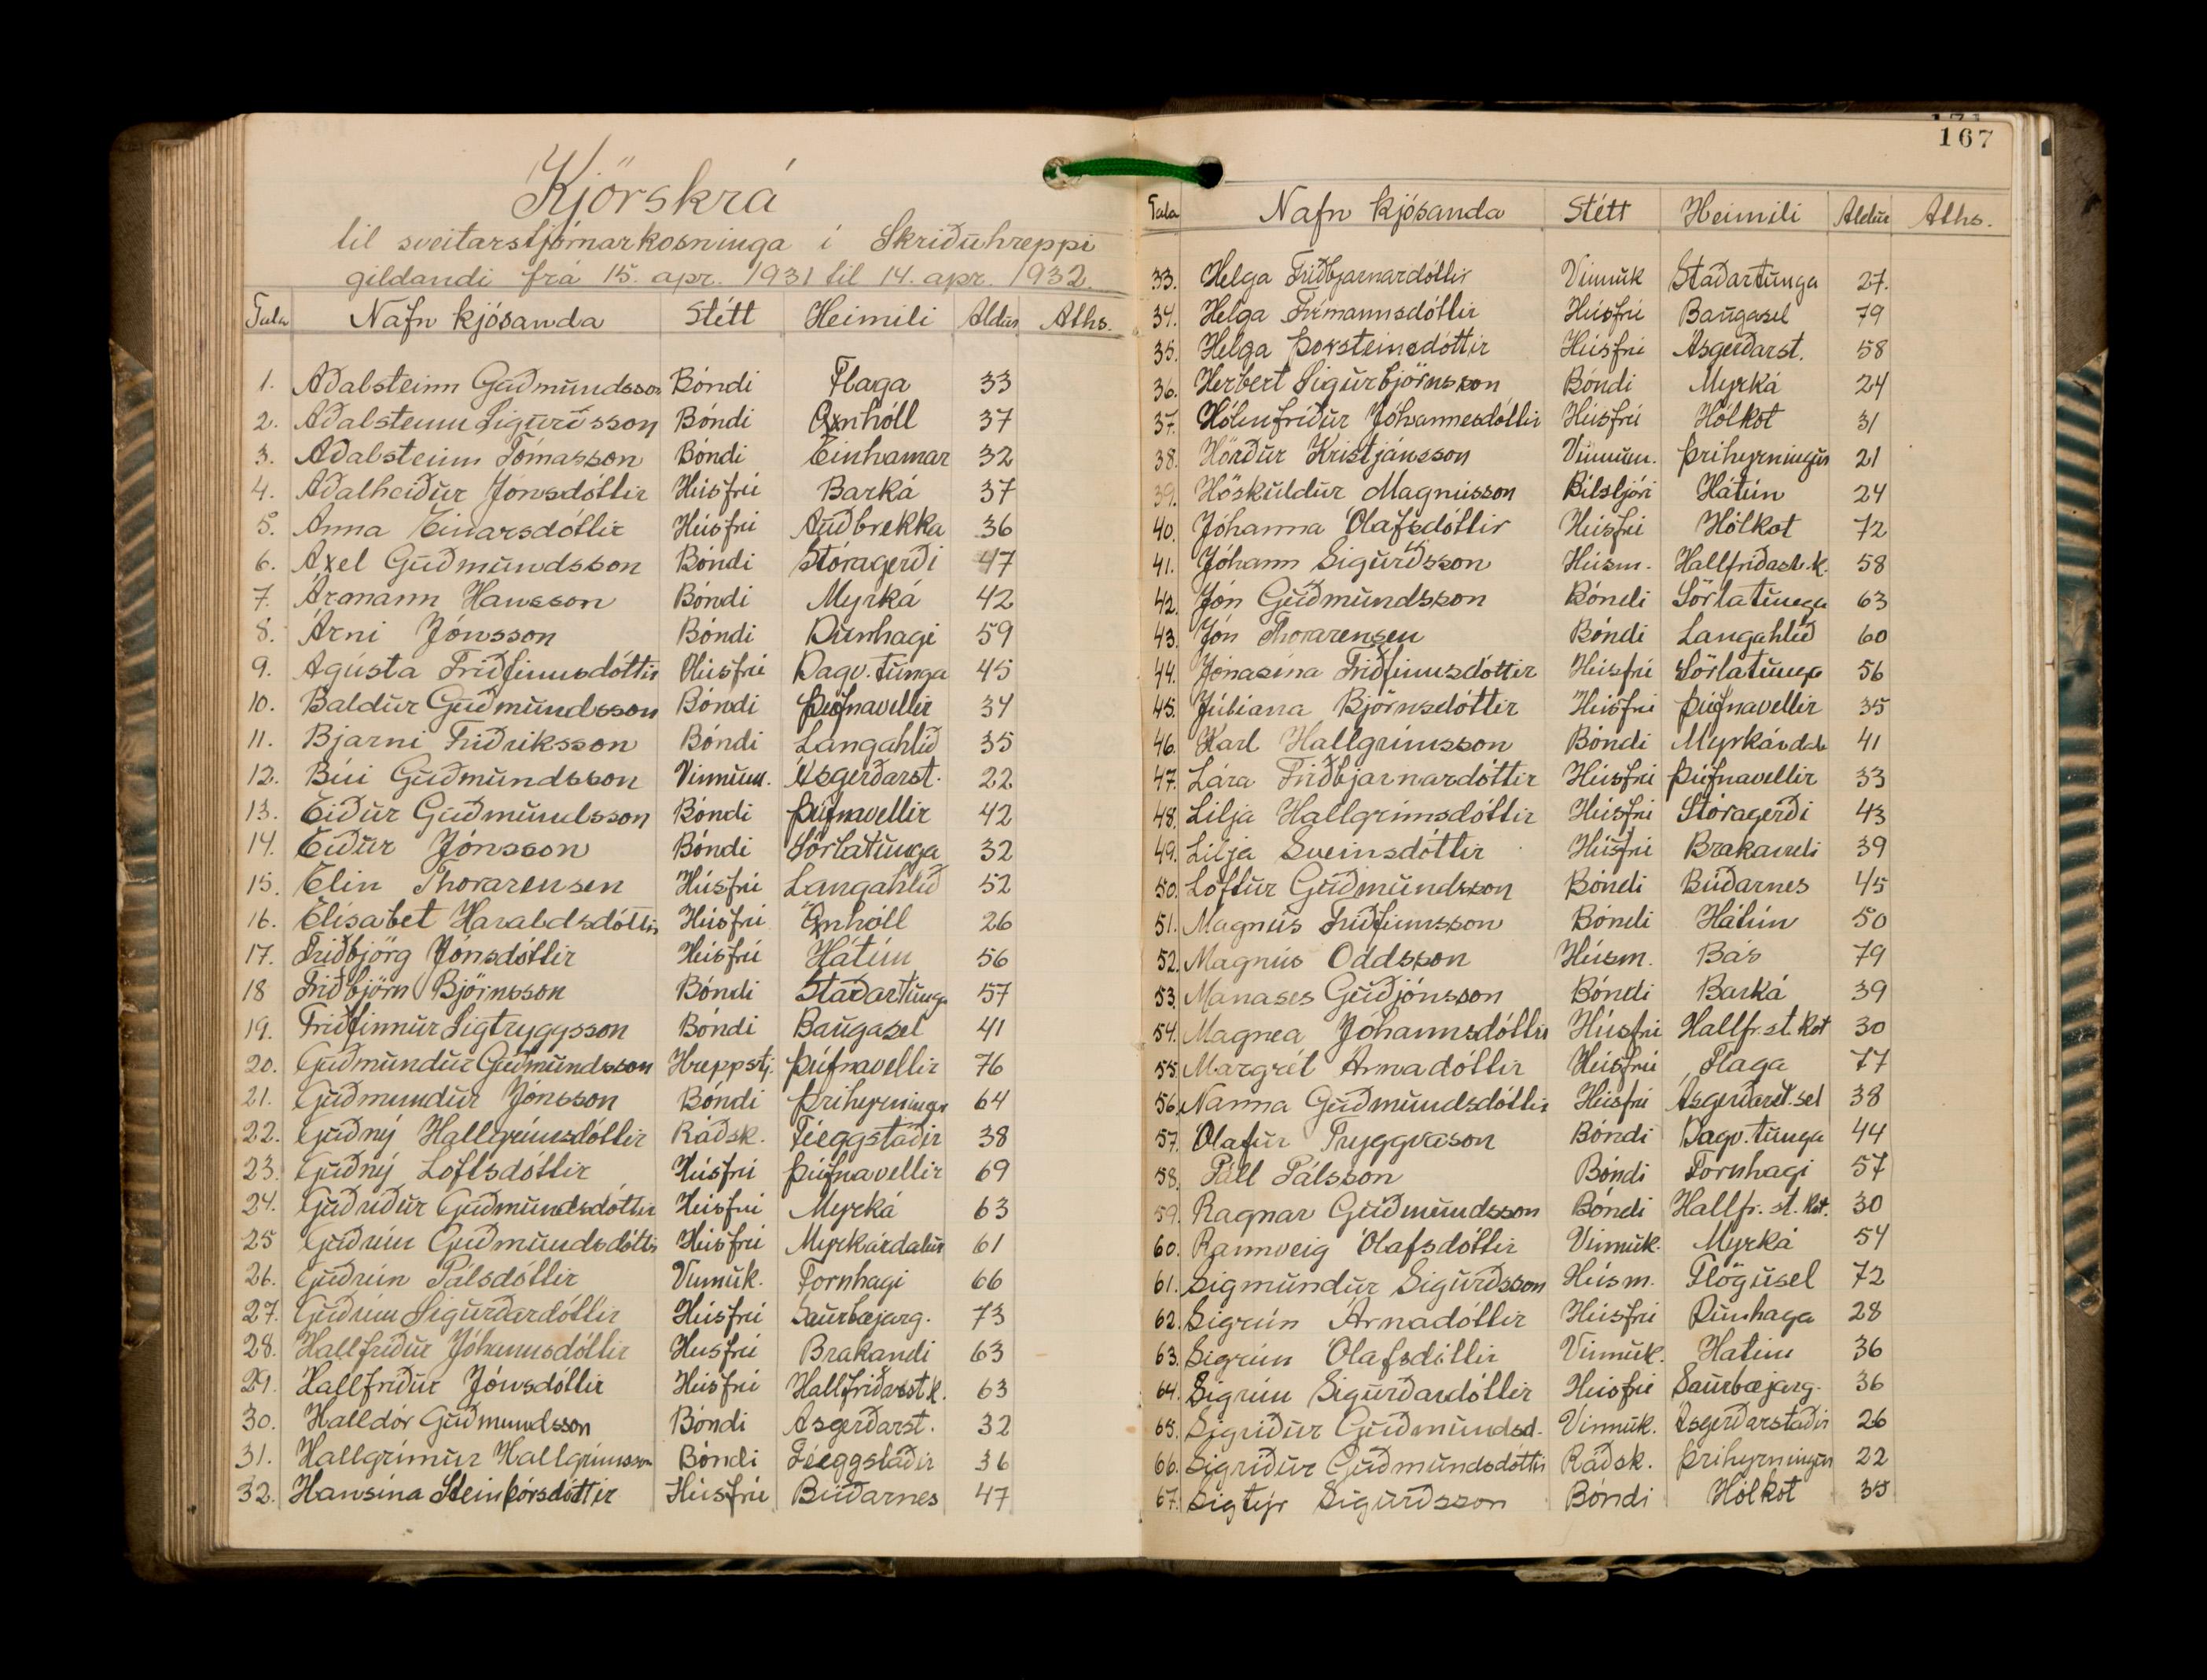 Kjörskrá
til sveitarstjórnarkosninga í Skriðuhreppi
gildandi frá 15. apr. 1931 til 14. apr. 1932.
Tala Nafn kjósanda Stétt Heimili Aldur Aths.
1. Aðalsteinn Guðmundsson Bóndi Flaga 33
2. Aðalsteinn Sigurðsson Bóndi Öxnhóll 37
3. Aðalsteinn Tómasson Bóndi Einhamar 32
4. Aðalheiður Jónsdóttir Húsfrú Barká 37
5. Anna Einarsdóttir Húsfrú Auðbrekka 36
6. Axel Guðmundsson Bóndi Stóragerði 47
7. Ármann Hansson Bóndi Myrká 42
8. Árni Jónsson Bóndi Dunhagi 59
9. Agústa Friðfinnsdóttir Húsfrú Dagv. tunga 45
10. Baldur Guðmundsson Bóndi Þúfnavellir 34
11. Bjarni Friðriksson Bóndi Langahlíð 35
12. Búi Guðmundsson Vinnum. Ásgerðarst. 22
13. Eiður Guðmundsson Bóndi Þúfnavellir 42
14. Eiður Jónsson Bóndi Sörlatunga 32
15. Elin Thorarensen Húsfrú Langahlíð 52
16. Elísabet Haraldsdóttir Húsfrú Öxnhóll 26
17. Friðbjörg Jónsdóttir Húsfrú Hátún 56
18 Friðbjörn Björnsson Bóndi Staðartunga 57
19. Friðfinnur Sigtryggsson Bóndi Baugasel 41
20. Guðmundur Guðmundsson Hreppstj. Þúfnavellir 76
21. Guðmundur Jónsson Bóndi Þríhyrningur 64
22. Guðný Hallgrímsdóttir Ráðsk. Féeggstaðir 38
23. Guðný Loftsdóttir Húsfrú Þúfnavellir 69
24. Guðríður Guðmundsdóttir Húsfrú Myrká 63
25 Guðrún Guðmundsdóttir Húsfrú Myrkárdalur 61
26. Guðrún Pálsdóttir Vinnuk. Fornhagi 66
27. Guðrún Sigurðardóttir Húsfrú Saurbæjarg. 73
28. Hallfríður Jóhannsdóttir Húsfrú Brakandi 63
29. Hallfríður Jónsdóttir Húsfrú Hallfríðarst.k. 63
30. Halldór Guðmundsson Bóndi Ásgerðarst. 32
31. Hallgrímur Hallgrímsson Bóndi Féeggstaðir 36
32. Hansína Steinþórsdóttir Húsfrú Búðarnes 47
167
Tala Nafn kjósanda Stétt Heimili Aldur Aths.
33. Helga Friðbjarnardóttir Vinnuk Staðartunga 27.
34. Helga Frímannsdóttir Húsfrú Baugasel 79
35. Helga Þorsteinsdóttir Húsfrú Ásgerðarst. 58
36. Herbert Sigurbjörnsson Bóndi Myrká 24
37. Hólmfríður Jóhannesdóttir Húsfrú Hólkot 31
38. Hörður Kristjánsson Vinnum. Þríhyrningur 21
39. Höskuldur Magnússon Bílstjóri Hátún 24
40. Jóhanna Ólafsdóttir Húsfrú Hólkot 72
41. Jóhann Sigurðsson Húsm. Hallfríðarst.k. 58
42. Jón Guðmundsson Bóndi Sörlatunga 63
43. Jón Thorarensen Bóndi Langahlíð 60
44. Jónasína Friðfinnsdóttir Húsfrú Sörlatunga 56
45. Júlíana Björnsdóttir Húsfrú Þúfnavellir 35
46. Karl Hallgrímsson Bóndi Myrkárdal 41
47. Lára Friðbjarnardóttir Húsfrú Þúfnavellir 33
48. Lilja Hallgrímsdóttir Húsfrú Stóragerði 43
49. Lilja Sveinsdóttir Húsfrú Brakandi 39
50. Loftur Guðmundsson Bóndi Búðarnes 45
51. Magnús Friðfinnsson Bóndi Hátún 50
52. Magnús Oddsson Húsm. Bás 79
53. Manases Guðjónsson Bóndi Barká 39
54. Magnea Jóhannsdóttir Húsfrú Hallfr. st. kot 30
55. Margrét Arnadóttir Húsfrú Flaga 77
56. Nanna Guðmundsdóttir Húsfrú Ásgerðarst. sel 38
57. Ólafur Tryggvason Bóndi Dagv. tunga 44
58. Páll Pálsson Bóndi Fornhagi 57
59. Ragnar Guðmundsson Bóndi Hallfr. st. kot. 30
60. Rannveig Ólafsdóttir Vinnuk. Myrká 54
61. Sigmundur Sigurðsson Húsm. Flögusel 72
62. Sigrún Árnadóttir Húsfrú Dunhaga 28
63. Sigrún Ólafsdóttir Vinnuk. Hatún 36
64. Sigrún Sigurðardóttir Húsfrú Saurbæjarg. 36
65. Sigríður Guðmundsd. Vinnuk. Ásgerðarstaðir 26
66. Sigríður Guðmundsdóttir Ráðsk. Þríhyrningur 22
67. Sigtýr Sigurðsson Bóndi Hólkot 35